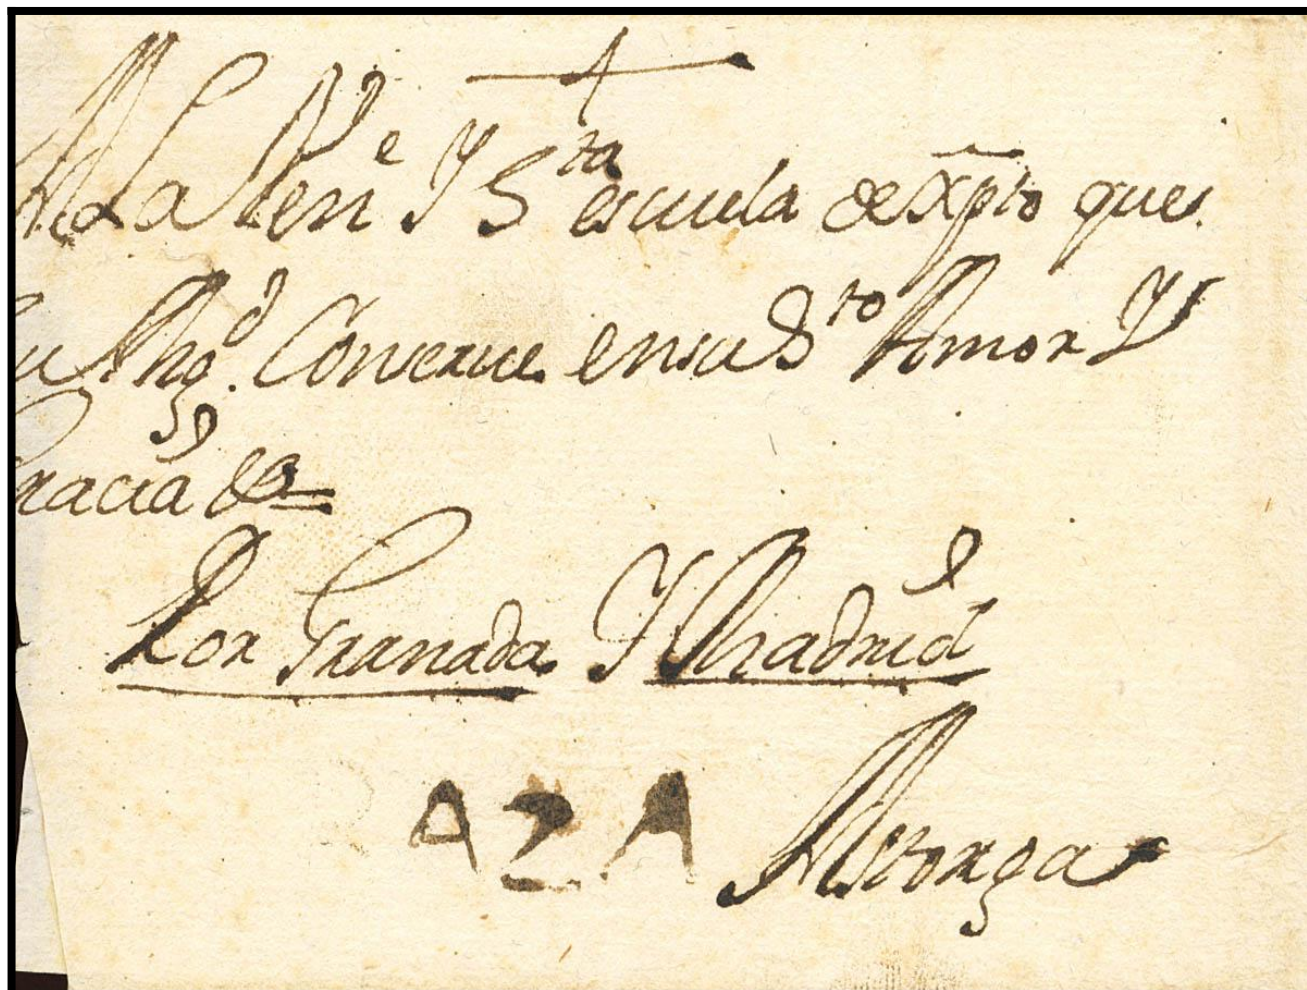 A La Ven^e Y S^ta escuela de Xpto que
su Mag^d. Conserue en su S^to Amor Y
Gracia &a=
Por Granada Y Madrid
AZA Astorga